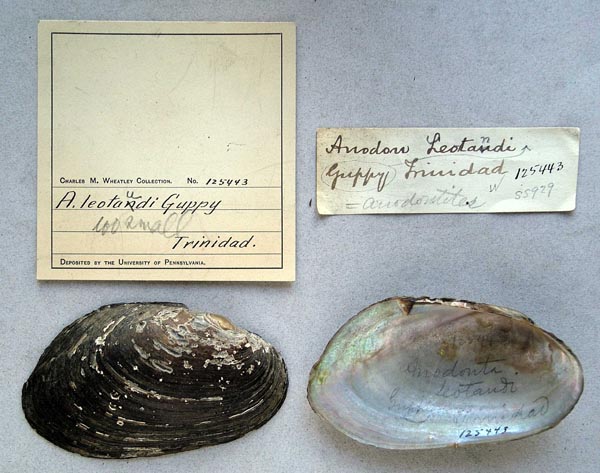 CHARLES M. WHEATLEY COLLECTION. No. 125443
A. leotandi Guppy
u
too small
Trinidad.
DEPOSITED BY THE UNIVERSITY OF PENNSYLVANIA.
Anodon Leotandi
n
(Guppy) Trinidad 125443
= anodontites 85929
Anodonta
leotandi
Guppy Trinidad
125443